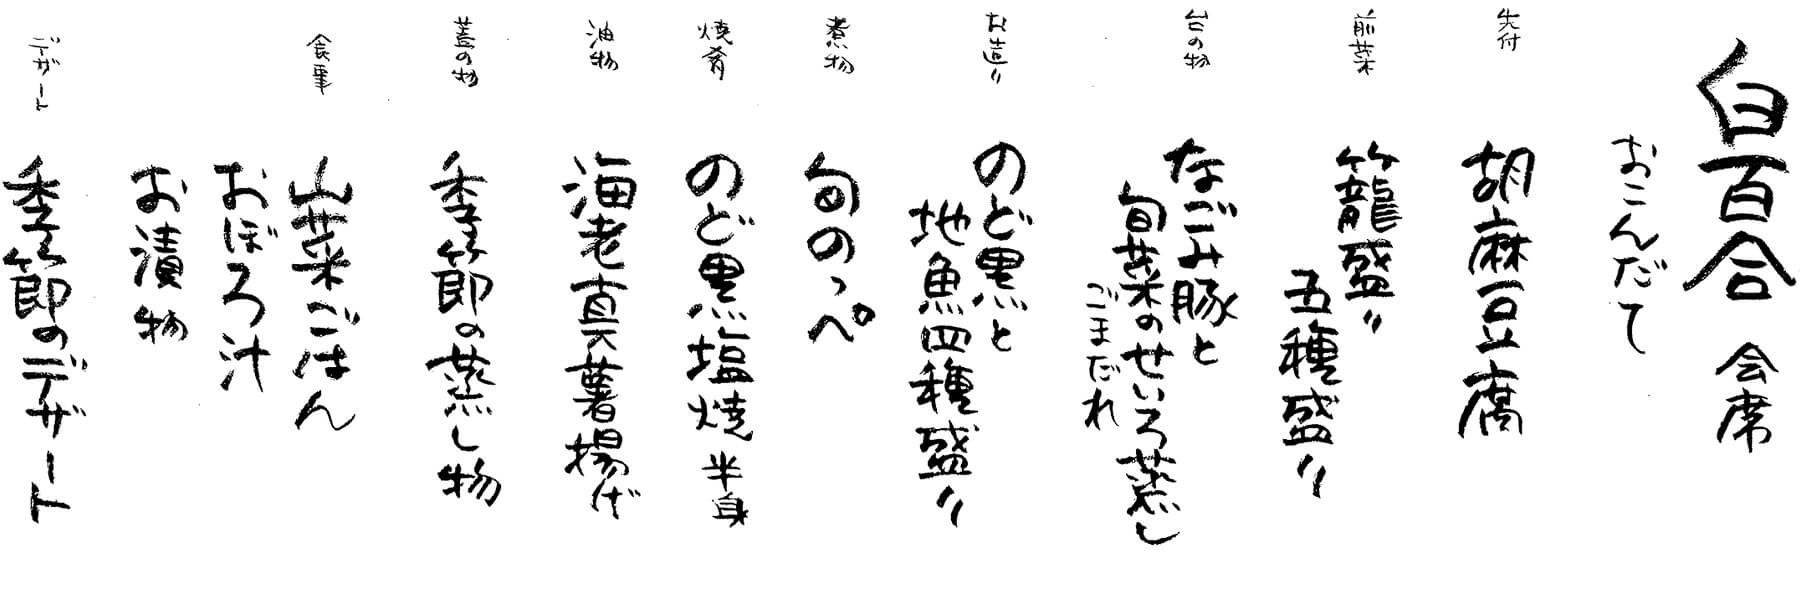 白百合 会席
おこんだて
先付
胡麻豆腐
前菜
籠盛り
五種盛り
台の物
なごみ豚と
旬菜のせいろ蒸し
ごまだれ
お造り
のど黒と
地魚四種盛り
煮物
旬のっぺ
焼肴
のど黒塩焼 半身
油物
海老真薯揚げ
蓋の物
季節の蒸し物
食事
山菜ごはん
おぼろ汁
お漬物
デザート
季節のデザート